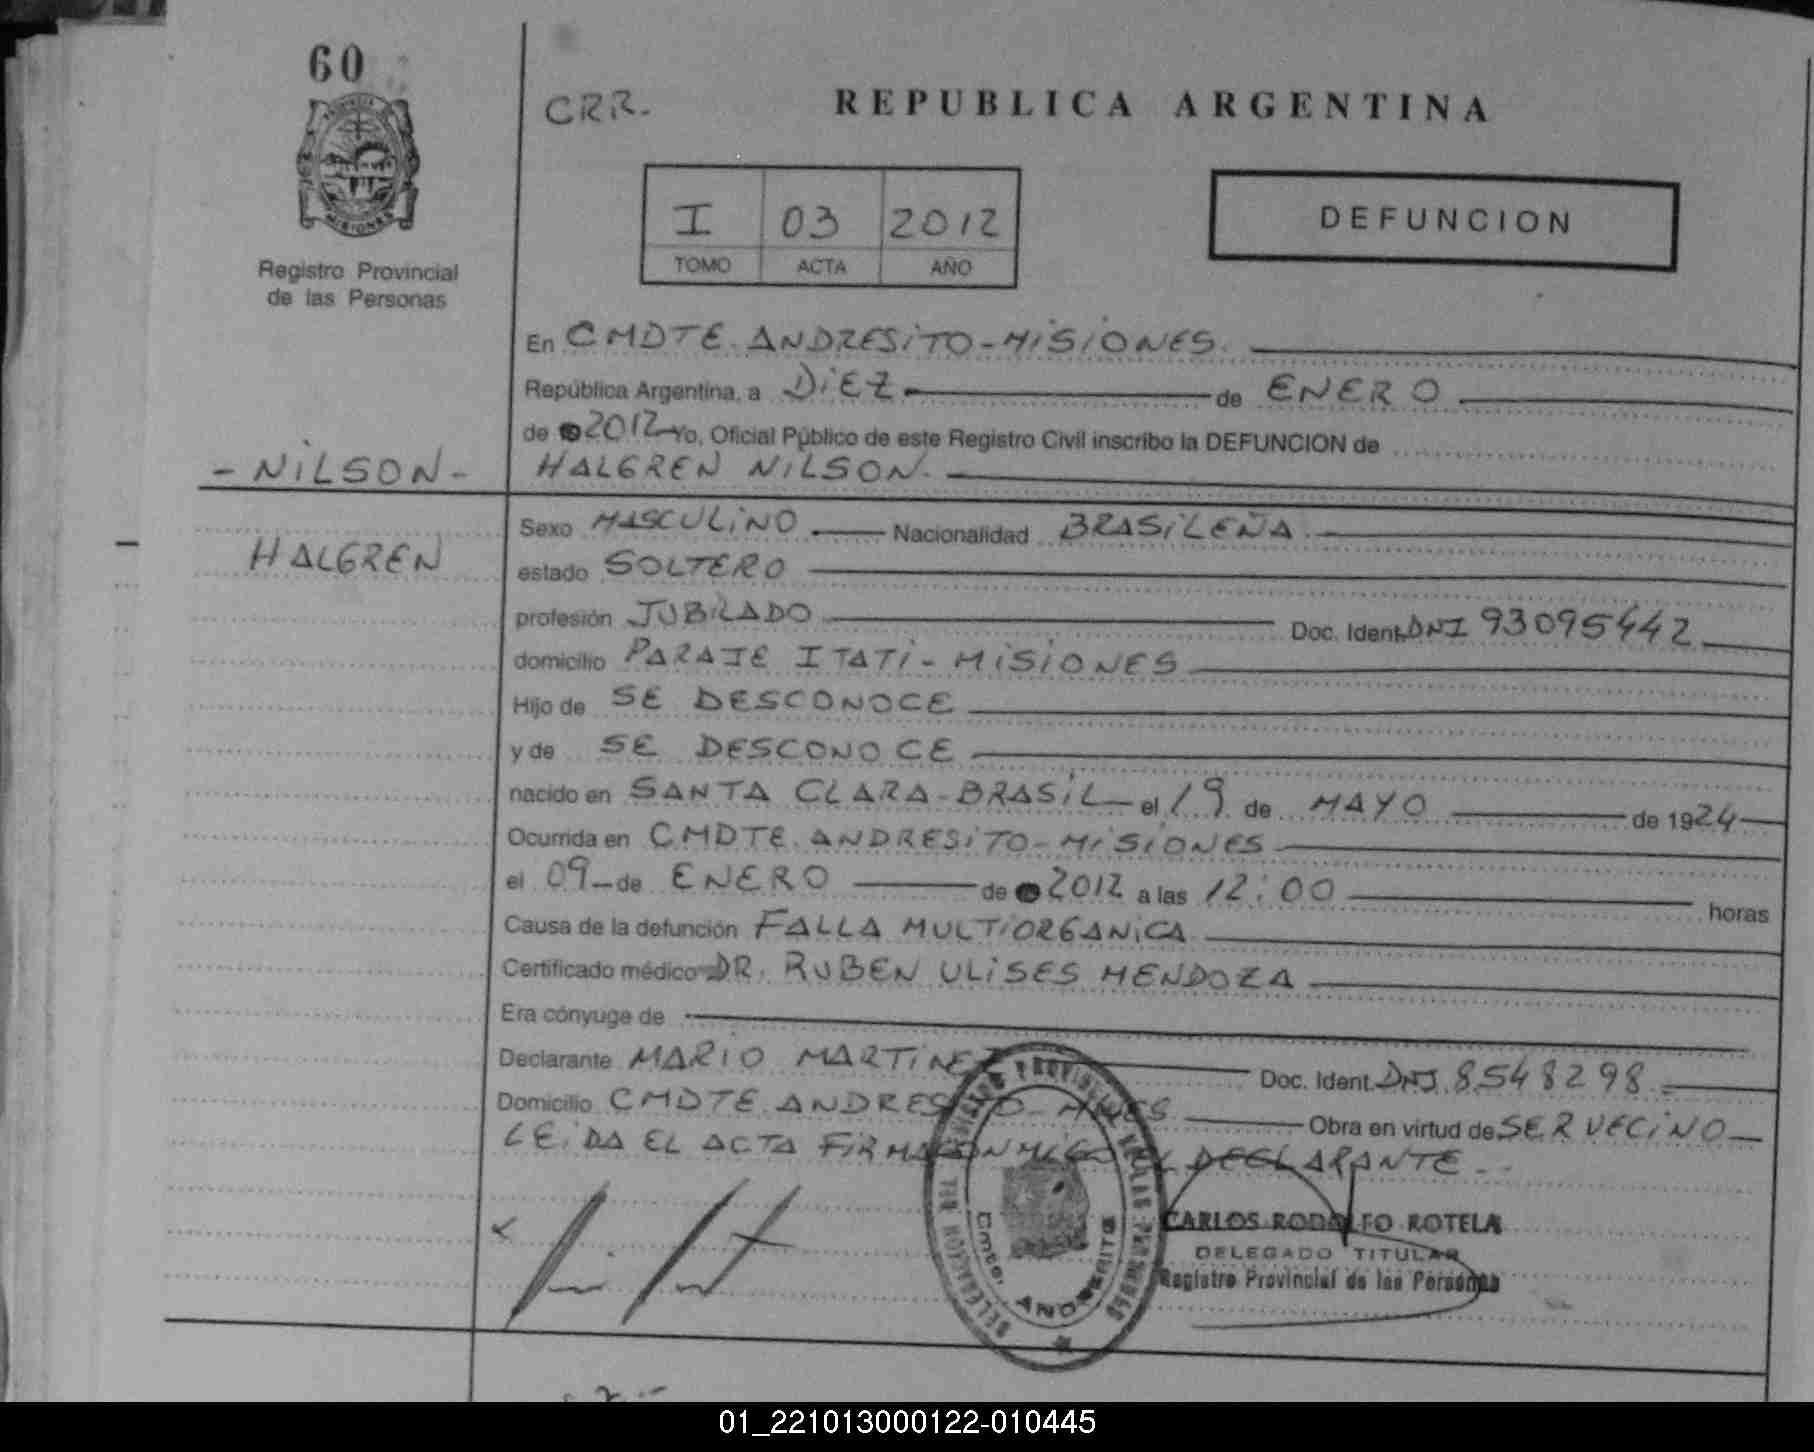 60
CRR.
REPUBLICA ARGENTINA
PROVINCIA
MISIONES
Registro Provincial
de las Personas
I 03 2012
TOMO ACTA AÑO
DEFUNCION
En CMDTE. ANDRESITO - MISIONES.
República Argentina, a DIEZ de ENERO
de 2012 Yo, Oficial Público de este Registro Civil inscribo la DEFUNCION de
- NILSON - HALGREN NILSON.
HALGREN
Sexo MASCULINO Nacionalidad BRASILEÑA.
estado SOLTERO
profesión JUBILADO Doc. Ident. DNI 93095442
domicilio PARAJE ITATI - MISIONES
Hijo de SE DESCONOCE
y de SE DESCONOCE
nacido en SANTA CLARA - BRASIL el 19 de MAYO de 1924
Ocurrida en CMDTE. ANDRESITO - MISIONES
el 09 de ENERO de 2012 a las 12:00 horas
Causa de la defunción FALLA MULTIORGANICA
Certificado médico DR. RUBEN ULISES MENDOZA
Era cónyuge de
Declarante MARIO MARTINEZ Doc. Ident. DNI. 8548298
Domicilio CMDTE. ANDRESITO - MNES Obra en virtud de SER VECINO
LEIDA EL ACTA FIRMA CONMIGO EL DECLARANTE.
CARLOS RODOLFO ROTELA
DELEGADO TITULAR
Registro Provincial de las Personas
Cmte. ANDRESITO
01_221013000122-010445